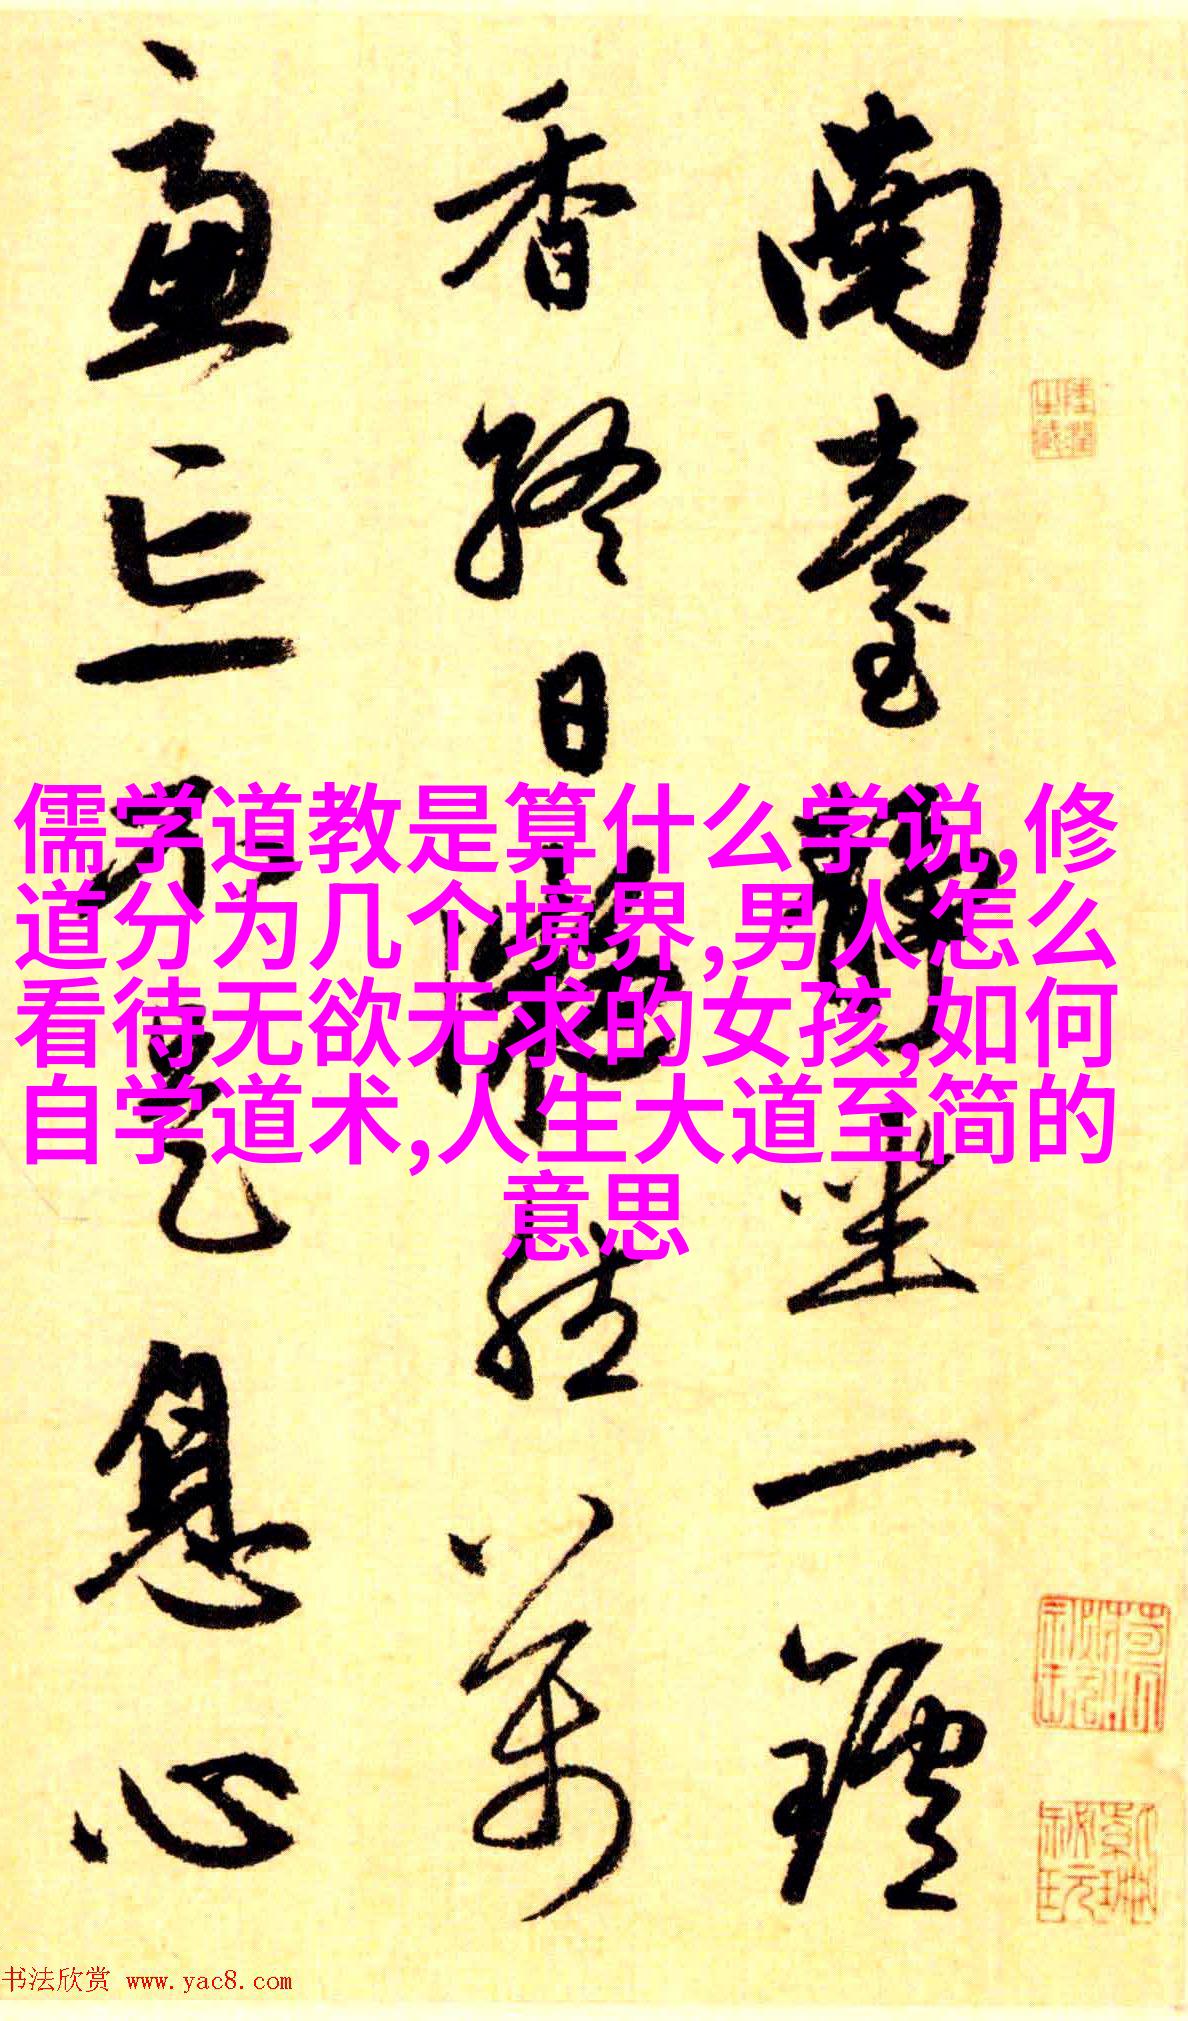 南臺靜坐一鑪
香終日凝然萬
慮忘不是息心
儒学道教是算什么学说,修
道分为几个境界,男人怎么
看待无欲无求的女孩,如何
自学道术,人生大道至简的
意思
书法欣赏 www.yac8.com